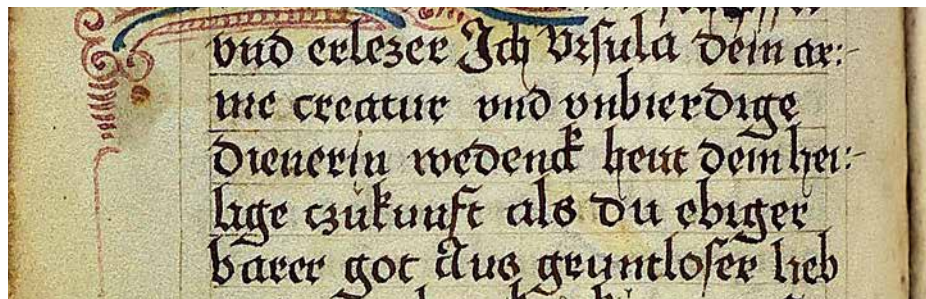 vnd erlezer Ich Vrsula dein ar:-
me creatur vnd vnbierdige
dienerin wedenck heut dein hei:-
lige czukunft als du ebiger
barer got Aus gruntloser lieb